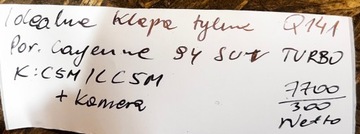 Idealna Klapa tylna Q141
Por. Cayenne 94 SUV TURBO
K: C5M/LC5M
+ Kamera
7700
300
Netto